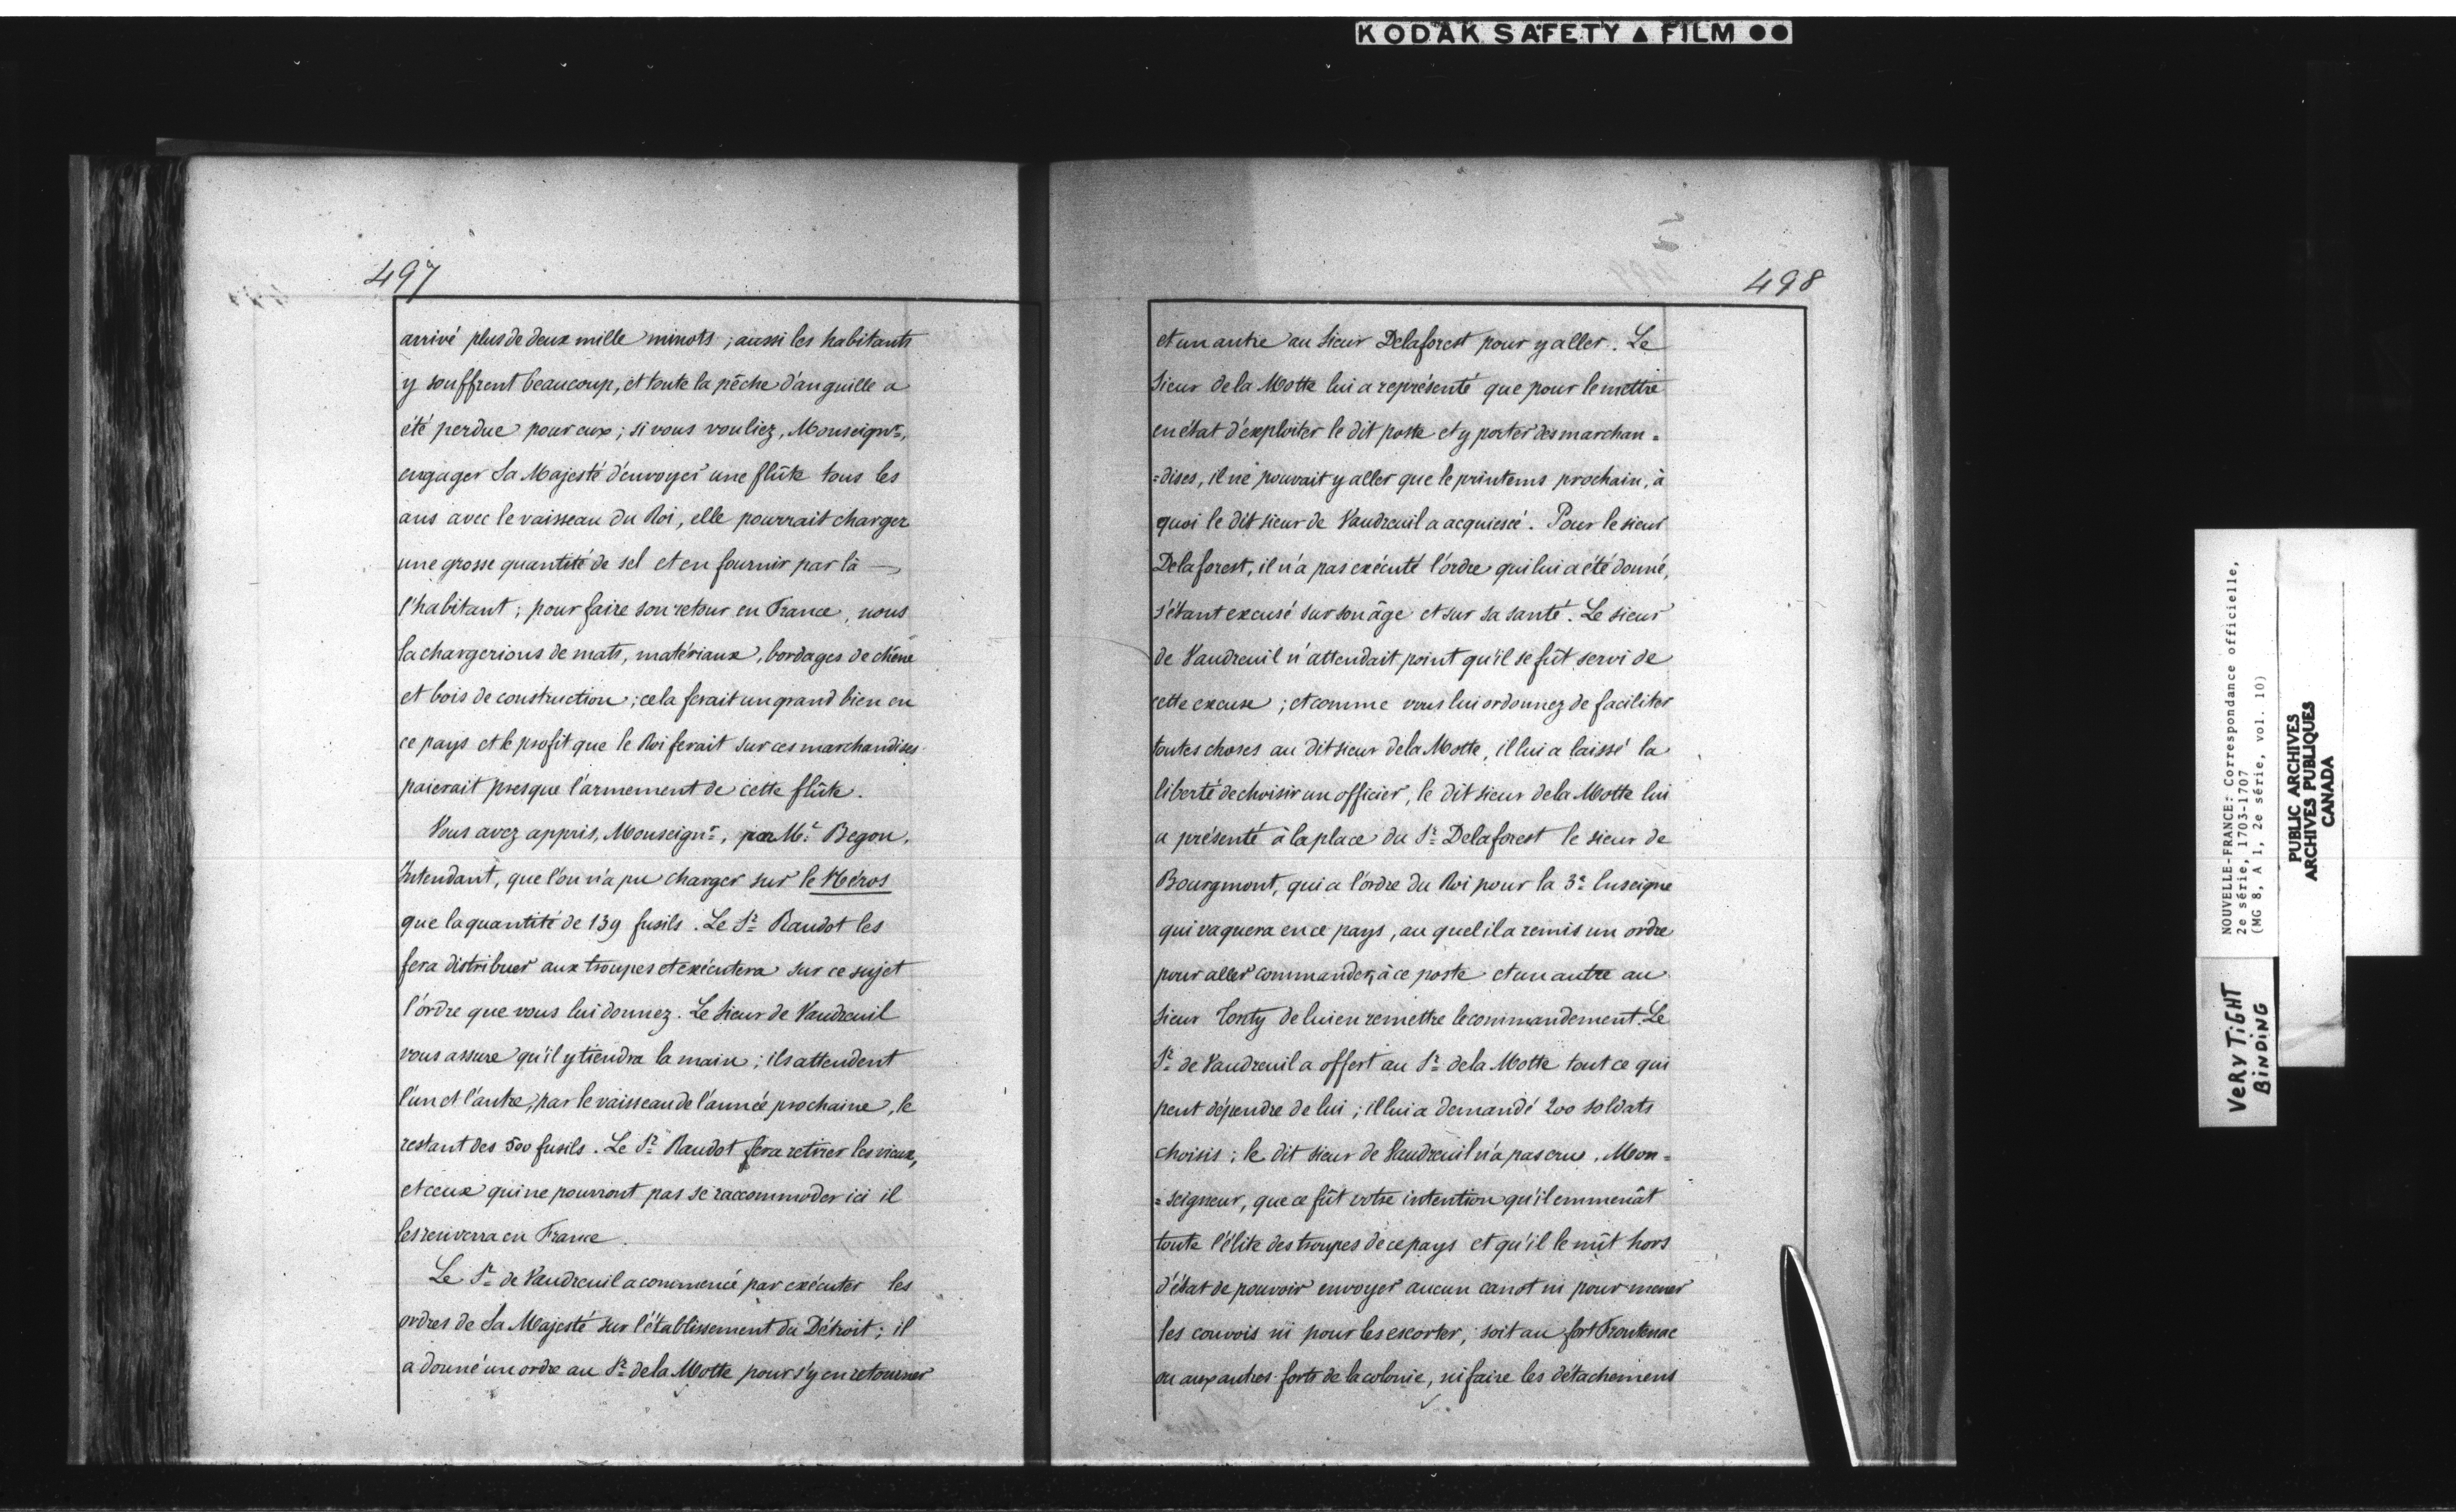 KODAK SAFETY ▲ FILM ●●
497
arrivé plus de deux mille minots ; aussi les habitants
y souffrent beaucoup, et toute la pêche d'anguille a
été perdue pour eux ; si vous vouliez, Monseignr,
engager Sa Majesté d'envoyer une flûte tous les
ans avec le vaisseau du Roi, elle pourrait charger
une grosse quantité de sel et en fournir par là —
l'habitant ; pour faire son retour en France, nous
la chargerions de mats, matériaux, bordages de chêne
et bois de construction ; cela ferait un grand bien en
ce pays et le profit que le Roi ferait sur ces marchandises
paierait presque l'armement de cette flûte.
Vous avez appris, Monseignr, par Mr. Begon,
Intendant, que l'on n'a pu charger sur le Héros
que la quantité de 139 fusils. Le Sr Raudot les
fera distribuer aux troupes et exécutera sur ce sujet
l'ordre que vous lui donnez. Le Sieur de Vaudreuil
vous assure qu'il y tiendra la main ; ils attendent
l'un et l'autre, par le vaisseau de l'année prochaine, le
restant des 500 fusils. Le Sr Raudot fera retirer les vieux,
et ceux qui ne pourront pas se raccommoder ici il
les renverra en France.
Le Sr de Vaudreuil a commencé par exécuter les
ordres de Sa Majesté sur l'établissement du Détroit ; il
a donné un ordre au Sr de la Motte pour s'y en retourner
498
et un autre au Sieur Delaforest pour y aller. Le
Sieur de la Motte lui a représenté que pour le mettre
en état d'exploiter le dit poste et y porter des marchan=
=dises, il ne pouvait y aller que le printems prochain, à
quoi le dit sieur de Vaudreuil a acquiescé. Pour le sieur
Delaforest, il n'a pas exécuté l'ordre qui lui a été donné,
s'étant excusé sur son âge et sur sa santé. Le sieur
de Vaudreuil n'attendait point qu'il se fût servi de
cette excuse ; et comme vous lui ordonnez de faciliter
toutes choses au dit sieur de la Motte, il lui a laissé la
liberté de choisir un officier, le dit sieur de la Motte lui
a présenté à la place du Sr Delaforest le sieur de
Bourgmont, qui a l'ordre du Roi pour la 3e Enseigne
qui vaquera en ce pays, au quel il a remis un ordre
pour aller commander à ce poste et un autre au
Sieur Tonty de lui en remettre le commandement. Le
Sr de Vaudreuil a offert au Sr de la Motte tout ce qui
peut dépendre de lui ; il lui a demandé 200 soldats
choisis ; le dit sieur de Vaudreuil n'a pas cru, Mon=
=seigneur, que ce fût votre intention qu'il emmenât
toute l'élite des troupes de ce pays et qu'il le mît hors
d'état de pouvoir envoyer aucun canot ni pour mener
les convois ni pour les escorter, soit au fort Frontenac
ou aux autres forts de la colonie, ni faire les détachemens
NOUVELLE-FRANCE: Correspondance officielle,
2e série, 1703-1707
(MG 8, A 1, 2e série, vol. 10)
PUBLIC ARCHIVES
ARCHIVES PUBLIQUES
CANADA
VERY TIGHT
BINDING